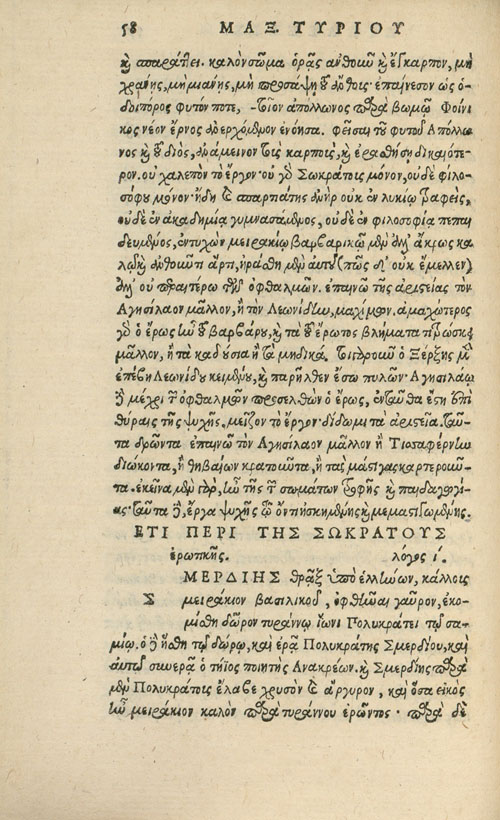 58 ΜΑΞ. ΤΥΡΙΟΥ
καὶ ἀπαράτλει. καλὸν σῶμα ὁρᾷς ἀνθοῦν καὶ ἔγκαρπον, μὴ
χράνῃς, μὴ μιάνῃς, μὴ προσάψῃ τοῦ ἄνθους· ἐπαίνεσον ὡς ὁ-
δοιπόρος φυτόν ποτε, τοῖον ἀπόλλωνος παρὰ βωμῷ Φοίνι
κος νέον ἔρνος ἀνερχόμενον ἐνόησα. φεῖσαι τοῦ φυτοῦ Ἀπόλλω
νος καὶ τοῦ διός, ἀνάμεινον τοὺς καρποὺς, καὶ ἐραθήσῃ δικαιότε-
ρον. οὐ χαλεπὸν τὸ ἔργον· οὐ γὰρ Σωκράτους μόνον, οὐδὲ φιλο-
σόφου μόνον· ἤδη καὶ σπαρτιάτης ἀνὴρ οὐκ ἐν λυκίῳ τραφεὶς,
οὐδὲ ἐν ἀκαδημίᾳ γυμνασάμενος, οὐδὲ ἐν φιλοσοφίᾳ πεπαι
δευμένος, ἐντυχὼν μειρακίῳ βαρβαρικῷ μὲν ἀλλ' ἄκρως κα
λῷ καὶ ἀνθοῦντι ἄρτι, ἠράσθη μὲν αὐτοῦ (πῶς δ' οὐκ ἔμελλεν)
ἀλλ' οὐ περαιτέρω τῶν ὀφθαλμῶν. ἐπαινῶ τῆς ἀριστείας τὸν
Ἀγησίλαον μᾶλλον, ἢ τὸν Λεωνίδην, μάχιμον. ἀμαχώτερος
γὰρ ὁ ἔρως ἦν τοῦ βαρβάρου, καὶ τὰ τοῦ ἔρωτος βλήματα τιτρώσκει
μᾶλλον, ἢ τὰ καδούσια ἢ τὰ μηδικά. τοιγαροῦν ὁ Ξέρξης μὲν
ἐπέβη Λεωνίδου κειμένου, καὶ παρῆλθεν ἔσω πυλῶν· Ἀγησιλάῳ
δὲ μέχρι τῶν ὀφθαλμῶν προσελθὼν ὁ ἔρως, ἐνταῦθα ἔστη ἐπὶ
θύραις τῆς ψυχῆς. μεῖζον τὸ ἔργον· δίδωμι τὰ ἀριστεῖα. ταῦ-
τα δρῶντα ἐπαινῶ τὸν Ἀγησίλαον μᾶλλον ἢ Τισσαφέρνην
διώκοντα, ἢ θηβαίων κρατοῦντα, ἢ τὰς μάστιγας καρτεροῦν-
τα. ἐκεῖνα μὲν γὰρ, ἦν τῆς τῶν σωμάτων τροφῆς καὶ παιδαγωγί-
ας· ταῦτα δὲ, ἔργα ψυχῆς τῷ ὄντι ἠσκημένης καὶ μεμαστιγωμένης.
ΕΤΙ ΠΕΡΙ ΤΗΣ ΣΩΚΡΑΤΟΥΣ
ἐρωτικῆς. λόγος ί.
Σ ΜΕΡΔΙΗΣ θρᾷξ ὑπὸ ἑλλήνων, κάλλους
μειράκιον βασιλικοῦ, ὀφθῆναι γαῦρον, ἐκο-
μίσθη δῶρον τυράννῳ ἴωνι Πολυκράτει τῷ σα-
μίῳ. ὁ δὲ ἥσθη τῷ δώρῳ, καὶ ἐρᾷ Πολυκράτης Σμερδίου, καὶ
αὐτῷ συνερᾷ ὁ τήϊος ποιητὴς Ἀνακρέων. καὶ Σμερδίης παρὰ
μὲν Πολυκράτους ἔλαβε χρυσὸν καὶ ἄργυρον, καὶ ὅσα εἰκὸς
ἦν μειράκιον καλὸν παρὰ τυράννου ἐρῶντος· παρὰ δὲ